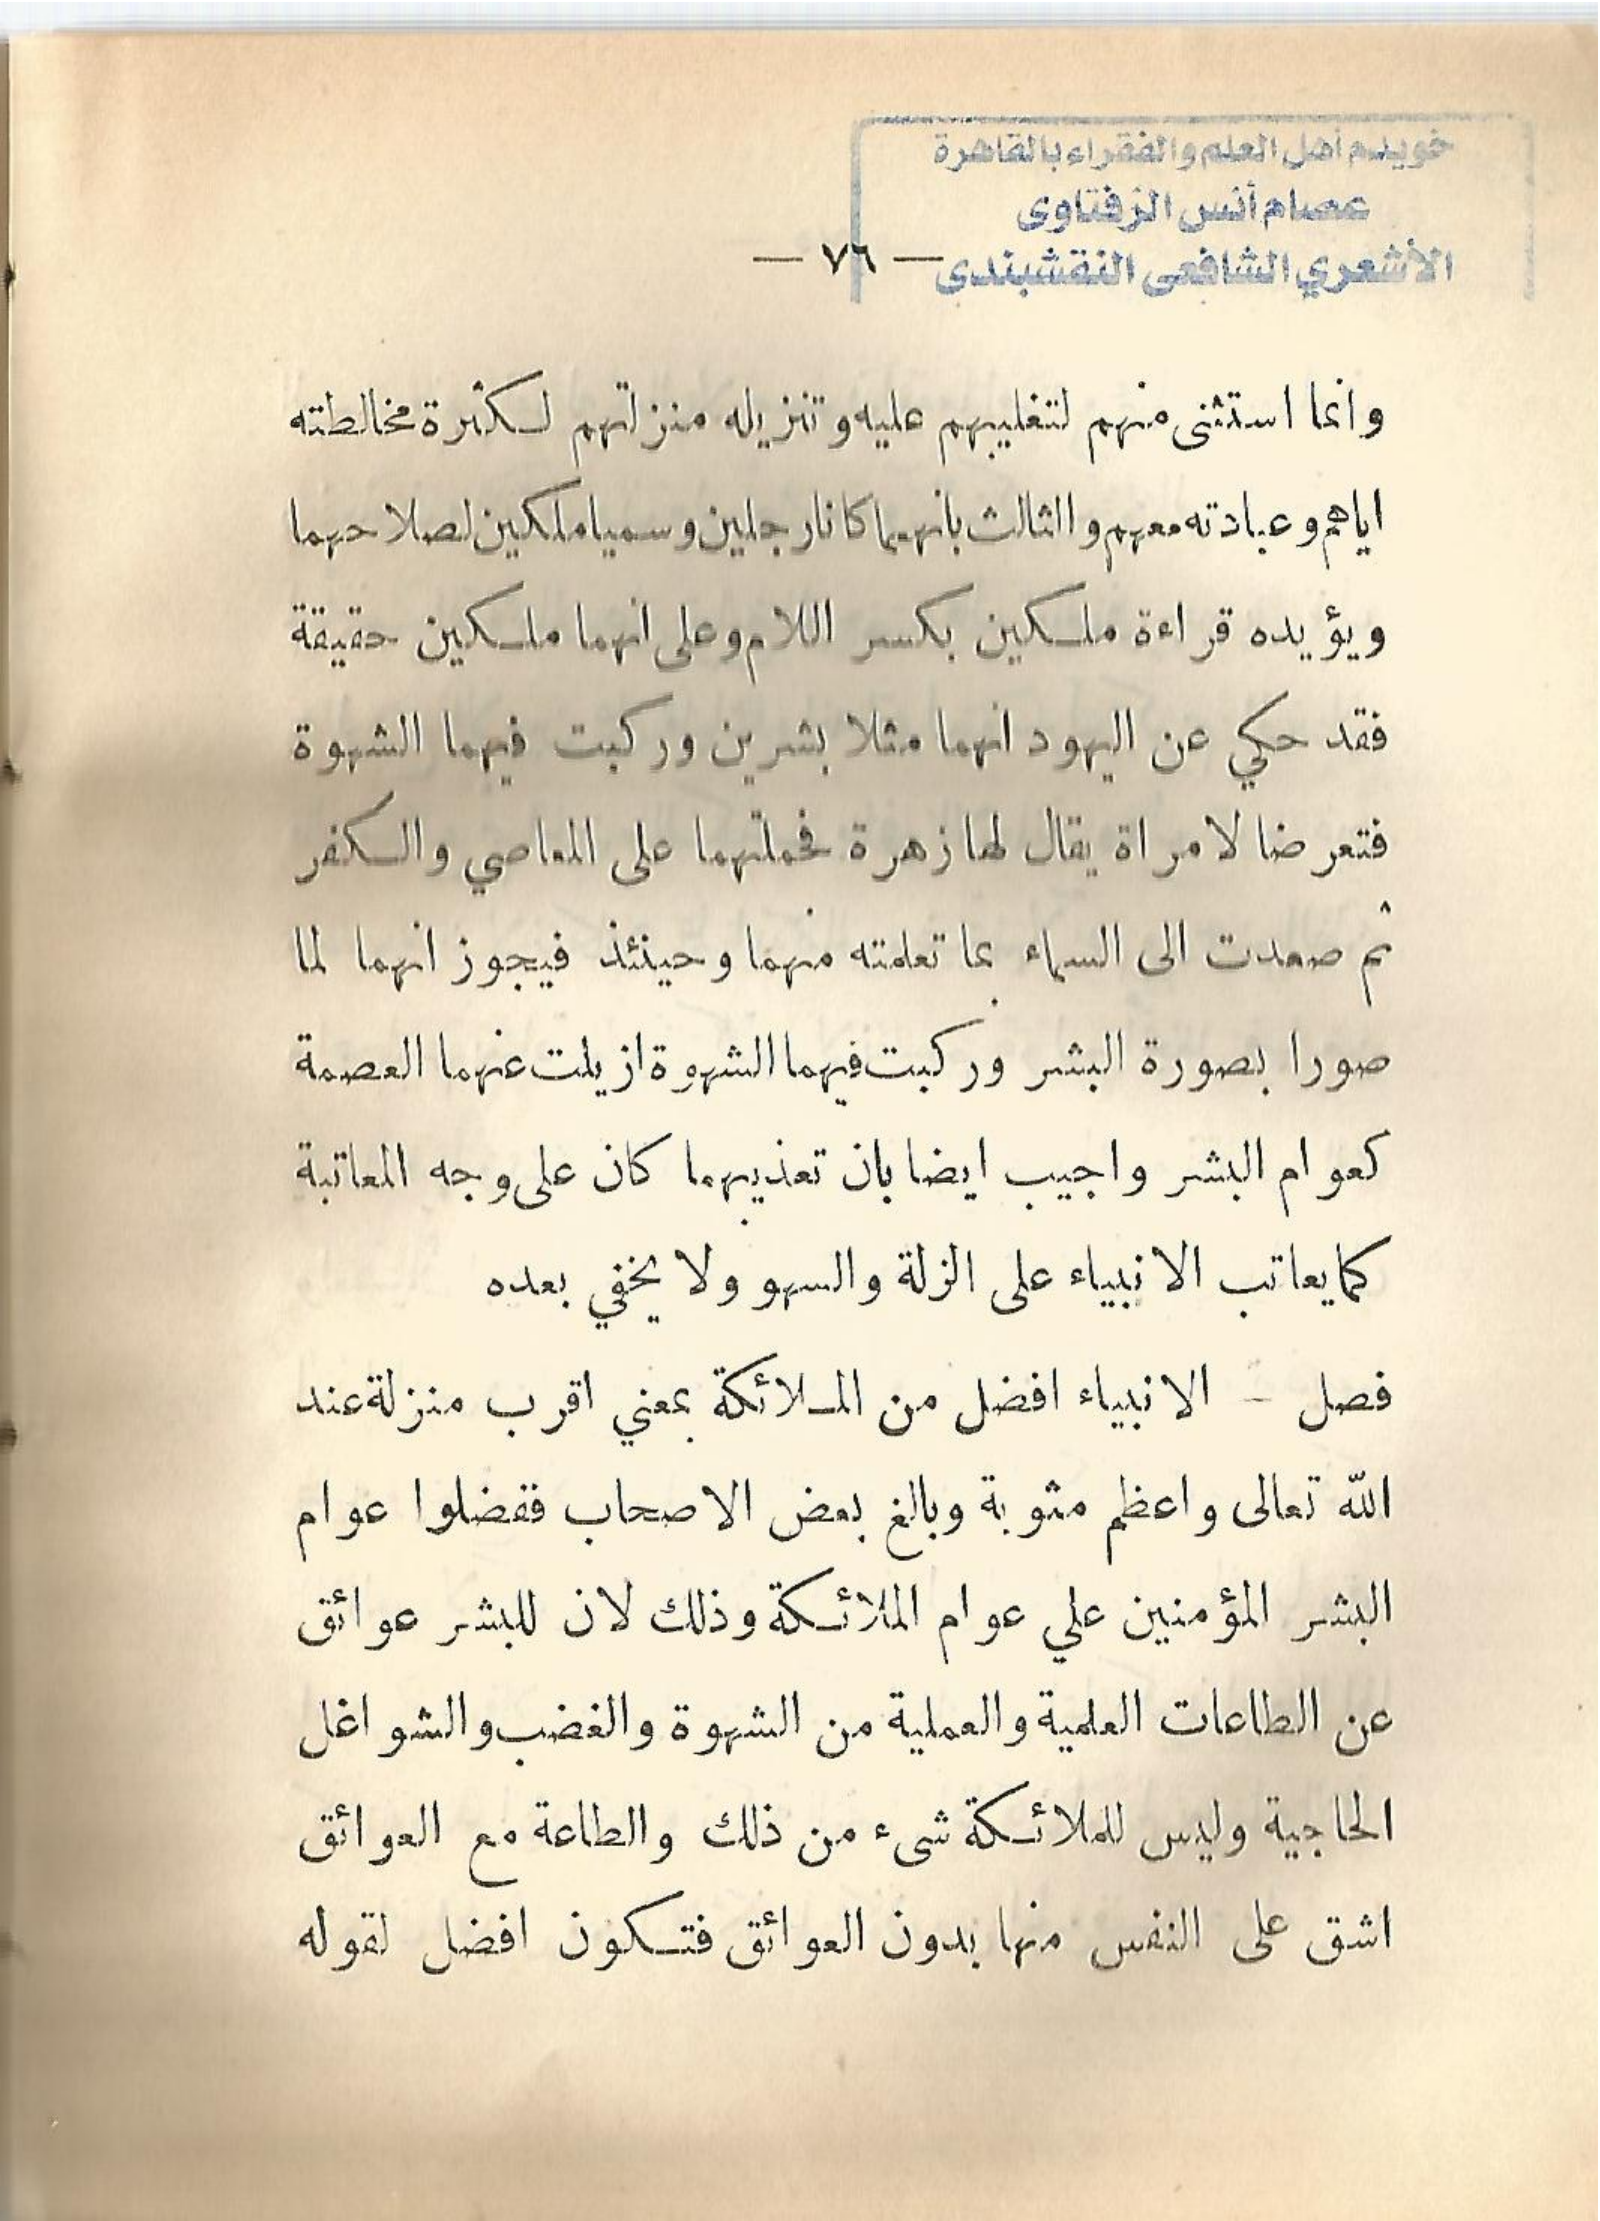 خويدم أهل العلم والفقراء بالقاهرة
عصام أنس الزفتاوى
الأشعري الشافعى النقشبندى
— ٧٦ —
وانما استثنى منهم لتغليبهم عليه وتنزيله منزلتهم لكثرة مخالطته
اياهم وعبادته معهم والثالث بانهما كانا رجلين وسميا ملكين لصلاحهما
ويؤيده قراءة ملكين بكسر اللام وعلى انهما ملكين حقيقة
فقد حكي عن اليهود انهما مثلا بشرين وركبت فيهما الشهوة
فتعرضا لامراة يقال لها زهرة فحملتهما على المعاصي والكفر
ثم صعدت الى السماء بما تعلمته منهما وحينئذ فيجوز انهما لما
صورا بصورة البشر وركبت فيهما الشهوة ازيلت عنهما العصمة
كعوام البشر واجيب ايضا بان تعذيبهما كان على وجه المعاتبة
كما يعاتب الانبياء على الزلة والسهو ولا يخفي بعده
فصل – الانبياء افضل من الملائكة بمعني اقرب منزلة عند
الله تعالى واعظم مثوبة وبالغ بعض الاصحاب ففضلوا عوام
البشر المؤمنين علي عوام الملائكة وذلك لان للبشر عوائق
عن الطاعات العلمية والعملية من الشهوة والغضب والشواغل
الحاجية وليس للملائكة شىء من ذلك والطاعة مع العوائق
اشق على النفس منها بدون العوائق فتكون افضل لقوله